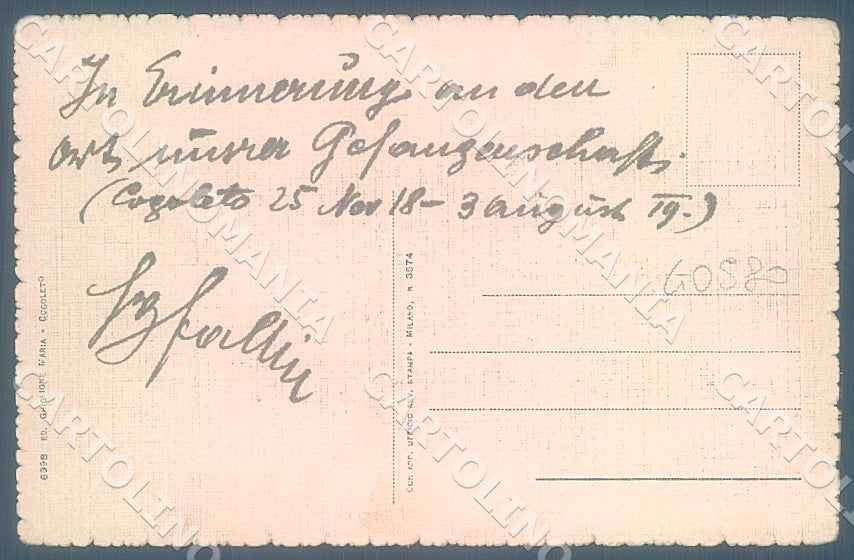 In Erinnerung an den
Ort unsrer Gefangenschaft.
(Cogoleto 25 Nov 18 – 3 August 19.)
GOS80
6398 ED. GHIGLIONE MARIA - COGOLETO
CON APP. UFFICIO REV. STAMPA - MILANO, N 3574
CARTOLINOMANIA